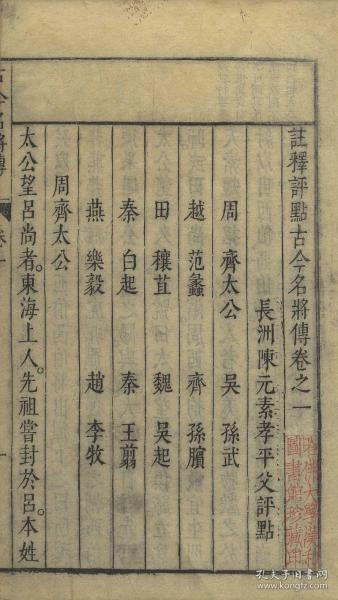 註釋評點古今名將傳卷之一
長洲陳元素孝平父評點
周 齊太公 吳 孫武
越 范蠡 齊 孫臏
田 穰苴 魏 吳起
秦 白起 秦 王翦
燕 樂毅 趙 李牧
周齊太公
太公望呂尚者。東海上人。先祖嘗封於呂。本姓
古今名將傳 卷一
孔夫子旧书网